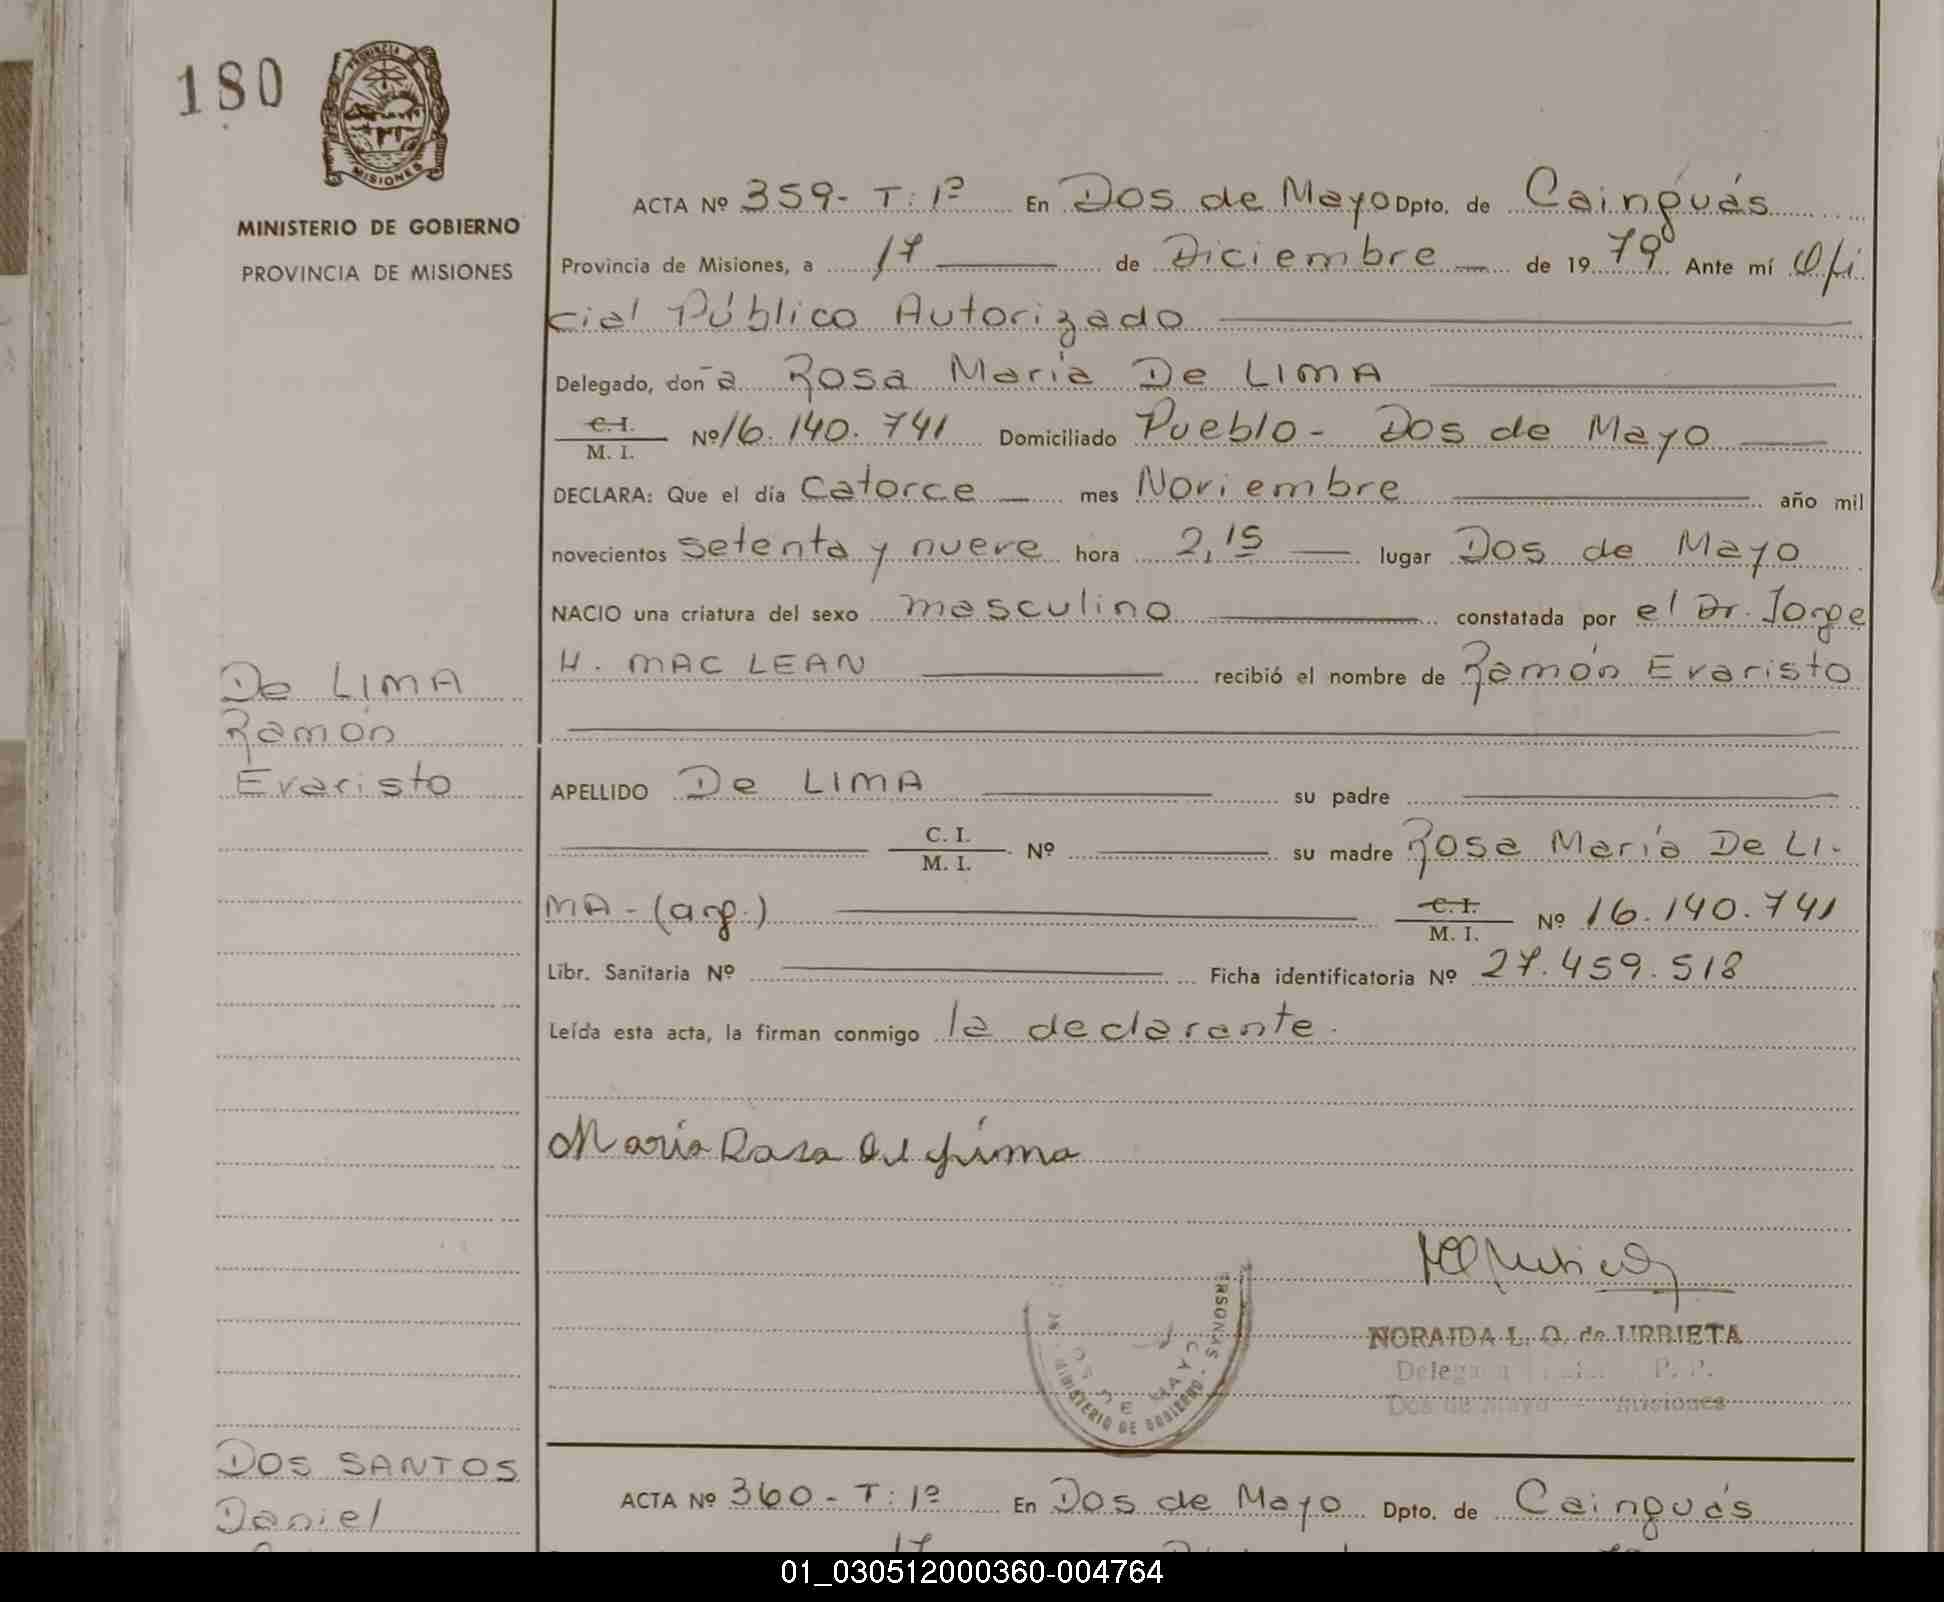 180
PROVINCIA DE
MISIONES
MINISTERIO DE GOBIERNO
PROVINCIA DE MISIONES
ACTA Nº 359- T: 1º En Dos de Mayo Dpto. de Cainguás
Provincia de Misiones, a 17 de Diciembre de 1979 Ante mí Ofi
cial Público Autorizado
Delegado, doña Rosa María De LIMA
C.I. M. I. Nº 16.140.741 Domiciliado Pueblo - Dos de Mayo
DECLARA: Que el día Catorce mes Noviembre año mil
novecientos setenta y nueve hora 2,15 lugar Dos de Mayo
NACIO una criatura del sexo masculino constatada por el Dr. Jorge
H. MAC LEAN recibió el nombre de Ramón Evaristo
De LIMA
Ramón
Evaristo
APELLIDO De LIMA su padre
C. I. M. I. Nº su madre Rosa María De LI-
MA - (arg.) C.I. M. I. Nº 16.140.741
Libr. Sanitaria Nº Ficha identificatoria Nº 27.459.518
Leída esta acta, la firman conmigo la declarante.
Maria Rosa De Lima
NORAIDA L. O. de URBIETA
Dos de Mayo - Misiones
ERSONAS - MINISTERIO DE GOBIERNO
DOS DE MAYO
DOS SANTOS
Daniel
ACTA Nº 360 - T: 1º En Dos de Mayo Dpto. de Cainguás
17
01_030512000360-004764